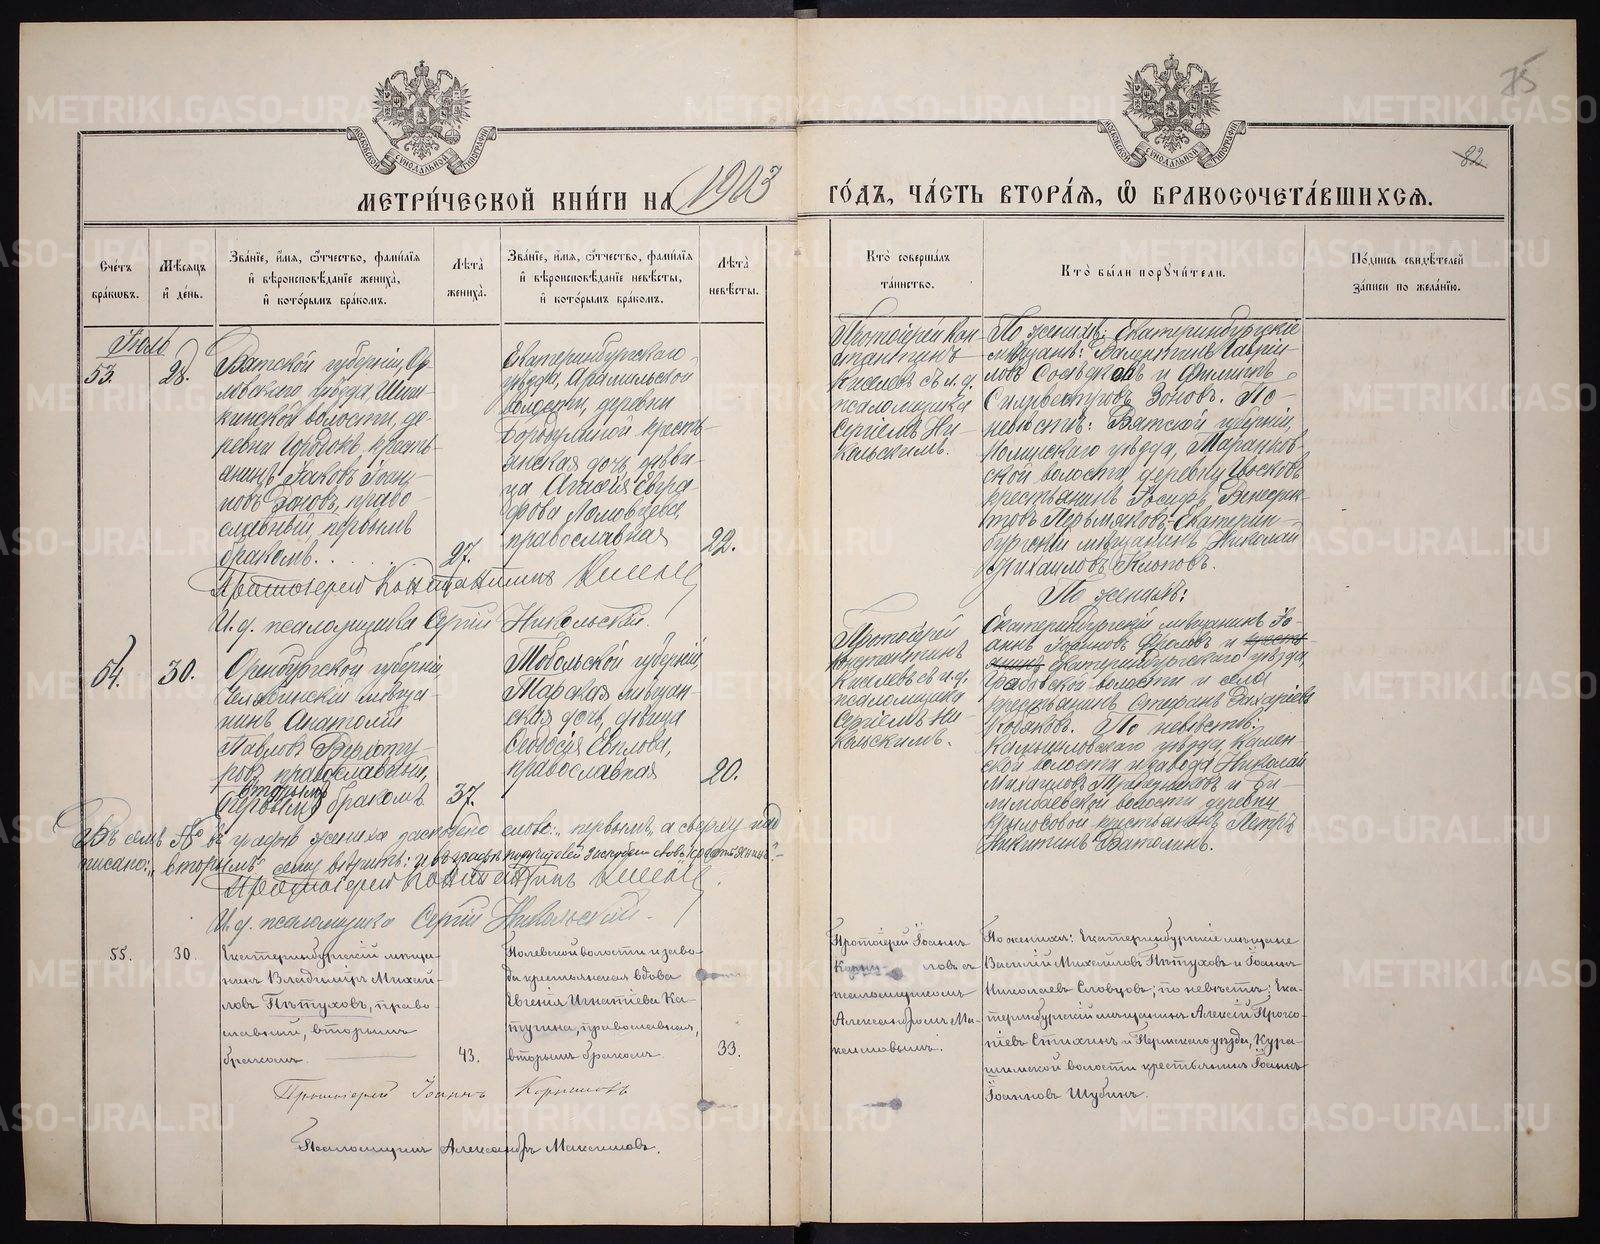 75
82
МЕТРИ́ЧЕСКОЙ КНИ́ГИ НА 1903 ГО́ДЪ, ЧА́СТЬ ВТОРА́Я, Ѽ БРАКОСОЧЕТА́ВШИХСЯ.
Сче́тъ
бра́ковъ.
Мѣ́сяцъ
и҆ де́нь.
Зва́нїе, и҆́мя, ѻ҆́тчество, фами́лїя
и҆ вѣроисповѣ́данїе жениха̀,
и҆ кото́рымъ бра́комъ.
Лѣ́та
жениха̀.
Зва́нїе, и҆́мя, ѻ҆́тчество, фами́лїя
и҆ вѣроисповѣ́данїе невѣ́сты,
и҆ кото́рымъ бра́комъ.
Лѣ́та
невѣ́сты.
Кто̀ соверша́лъ
та́инство.
Кто̀ бы́ли поручи́тели.
По́дпись свидѣ́телей
за́писи по жела́нїю.
Іюль
53.
28.
Вятской губерніи, Ор-
ловскаго уѣзда,
волости, де-
ревни кресть-
янинъ Іаковъ Іоан-
новъ Зоновъ, право-
славный, первымъ
бракомъ.
27.
Екатеринбургскаго
уѣзда, Арамильской
волости, деревни
Бородулиной кресть-
янская дочь, дѣви-
ца Агафія
Ломовцева,
православная
22.
Протоіерей Кон-
стантинъ
Киселевъ съ и. д.
псаломщика
Сергіемъ Ни-
кольскимъ.
По женихѣ: Екатеринбургскіе
мѣщане: Валентинъ Гаврі-
ловъ и Филиппъ
Сильвестровъ Зоновъ. По
невѣстѣ: Вятской губерніи,
уѣзда,
ской волости, деревни
крестьянинъ Іосифъ Венедик-
товъ Пермяковъ, Екатерин-
бургскій мѣщанинъ Николай
Михаиловъ Клоповъ.
Протоіерей Константинъ Киселевъ
И. д. псаломщика Сергій Никольскій.
54.
30.
Оренбургской губерніи,
Челябинскій мѣща-
нинъ Анатолій
Павловъ
ровъ, православный,
вторымъ
(первымъ) бракомъ.
37.
Тобольской губерніи,
Тарская мѣщан-
ская дочь, дѣвица
Ѳеодосія Евплова,
православная
20.
Протоіерей
Константинъ
Киселевъ съ и. д.
псаломщика
Сергіемъ Ни-
кольскимъ.
По женихѣ:
Екатеринбургскій мѣщанинъ Іо-
аннъ Іоанновъ Фроловъ и кресть-
янинъ Екатеринбургскаго уѣзда,
волости и села
крестьянинъ Стефанъ Захаріевъ
По невѣстѣ:
Камышловскаго уѣзда, Камен-
ской волости и завода Николай
Михаиловъ и Би-
лимбаевской волости деревни
Крылосовой крестьянинъ Петръ
Никитинъ Ватолинъ.
Въ семъ № въ графѣ жениха доскоблено слово: „первымъ“, а сверху над-
писано: „вторымъ“ сему вѣрить: и въ графѣ поручителей слово „крестьянинъ“.
Протоіерей Константинъ Киселевъ.
И. д. псаломщика Сергій Никольскій.
55.
30.
Екатеринбургскій мѣща-
нинъ Владиміръ Михай-
ловъ Пѣтуховъ, право-
славный, вторымъ
бракомъ.
43.
Полевской волости и заво-
да крестьянская вдова
Евгенія Игнатіева Ка-
тугина, православная,
вторымъ бракомъ.
33.
Протоіерей Іоаннъ
ловъ съ
псаломщикомъ
Александромъ Ма-
ксимовымъ.
По женихѣ: Екатеринбургскіе мѣщане
Василій Михайловъ Пѣтуховъ и Іоаннъ
Николаевъ Словцовъ; по невѣстѣ: Ека-
теринбургскій мѣщанинъ Алексій Проко-
піевъ Стихинъ и Пермскаго уѣзда, Кура-
шимской волости крестьянинъ Іоаннъ
Іоанновъ Шубинъ.
Протоіерей Іоаннъ
Псаломщикъ Александръ Максимовъ.